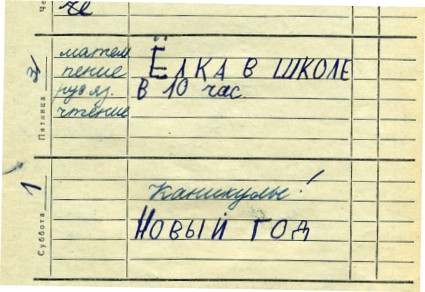 Че
че
Пятница 31
матем
пение
рус яз.
чтение
Ёлка в школе
в 10 час.
Суббота 1
Каникулы!
Новый год